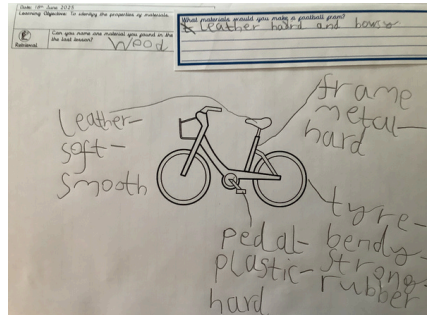 Date: 19th June 2025
Learning Objective: To identify the properties of materials.
Retrieval
Can you name one material you found in the
the last lesson?
Wood
What materials would you make a football from?
Leather haird and bowsy
Leather-
soft-
smooth
frame
metal-
hard
tyre-
bendy-
strong-
rubber
pedal-
plastic-
hard